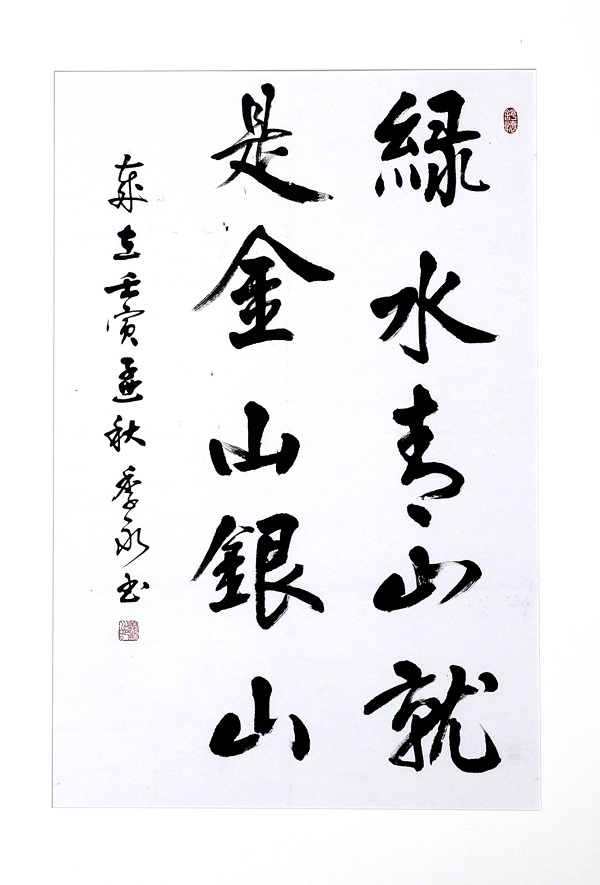 綠水青山就
是金山銀山
歲在壬寅孟秋季永书